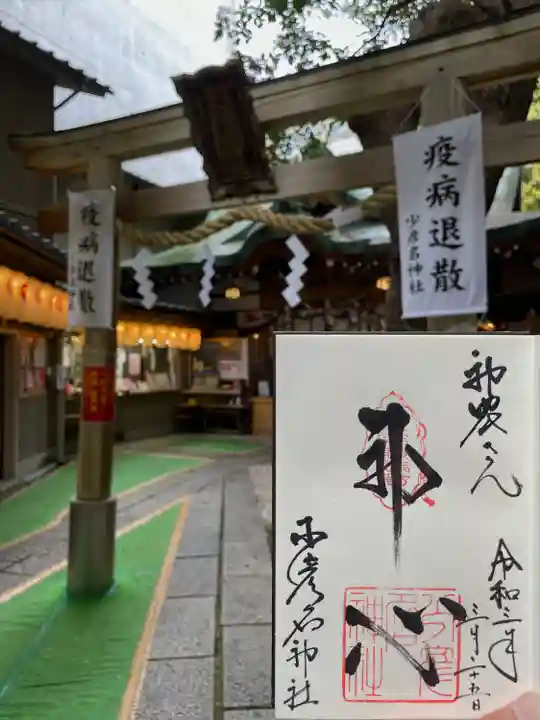 疫病退散
少彦名神社
疫病退散
神農さん
心
少彦名神社
令和三年
三月二十五日
少彦名神社